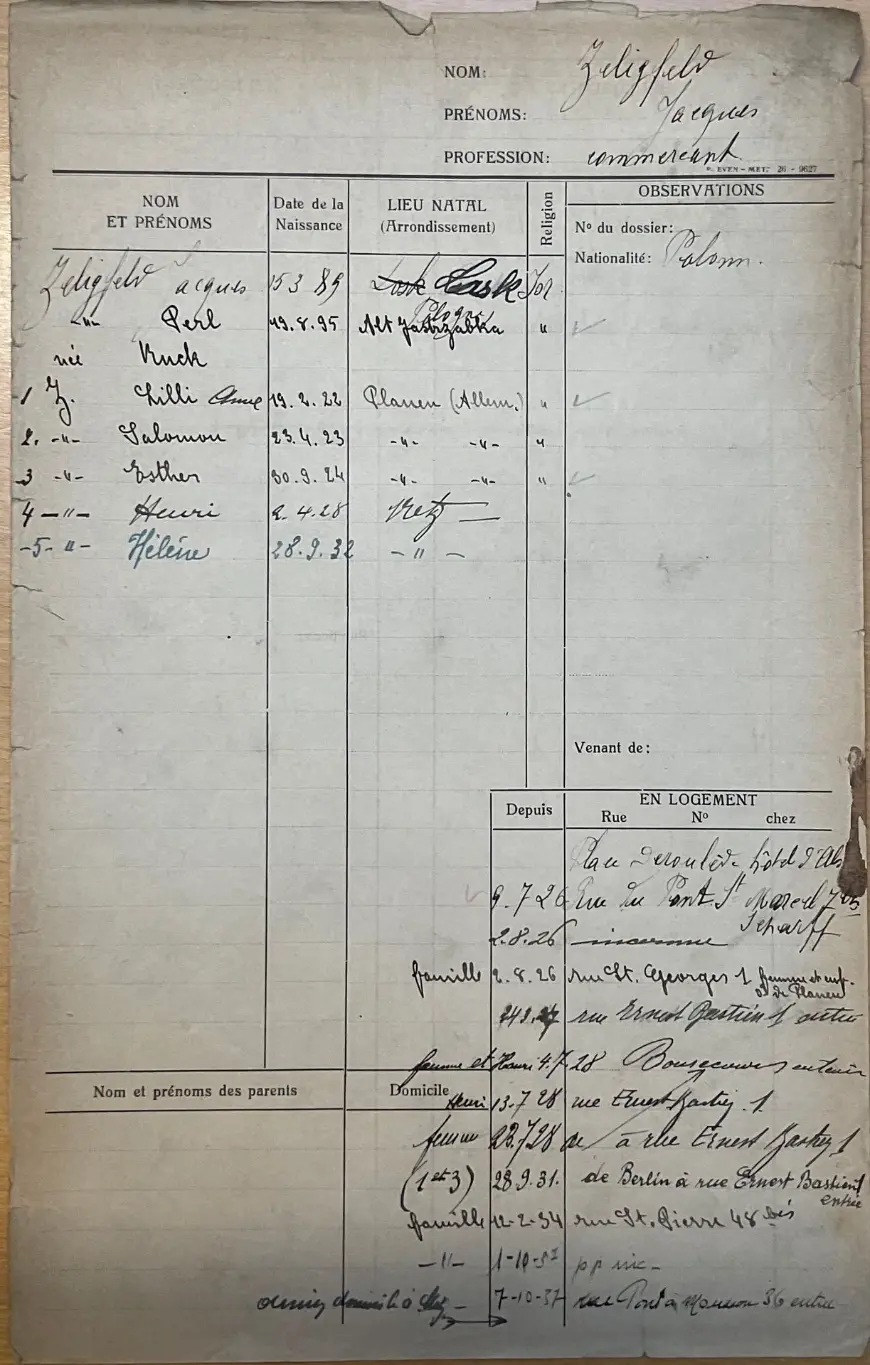 NOM: Zeligfeld
PRÉNOMS: Jacques
PROFESSION: commercant
EVEN - METZ 26 - 9627
NOM ET PRÉNOMS
Date de la Naissance
LIEU NATAL (Arrondissement)
Religion
OBSERVATIONS
N° du dossier:
Nationalité: Polon.
Zeligfeld Jacques 15 3 89 Lask Isr
Pologne
-"- Perl 19.8.95 Alt Jastrzabka "
née Kuck
1 Z. Lilli Anne 19.2.22 Plauen (Allem.) "
2. -"- Salomon 23.4.23 -"- -"- "
3 -"- Esther 30.9.24 -"- -"- "
4 -"- Henri 2.4.28 Metz
-5- "- Hélène 28.9.32 - " -
Venant de:
Depuis
EN LOGEMENT
Rue N° chez
Place Deroulède hôtel d'Als
9.7.26 Rue du Pont St Marcel 7 bis
Scharff
2.8.26 inconnue
famille 2.8.26 rue St. Georges 1 femme et enf.
de Plauen
rue Ernest Bastien 1 entrée
femme et Henri 4.7.28 Bonsecours
Nom et prénoms des parents
Domicile
Henri 13.7.28 rue Ernest Bastien 1
femme 22.7.28 de à rue Ernest Bastien 1
(1 et 3) 28.9.31. de Berlin à rue Ernest Bastien 1
entrée
famille 12-2-34 rue St. Pierre 48 bis
-"- 1-10-37
dernier domicile à Metz - 7-10-37 rue Pont à Mousson 36 entrée